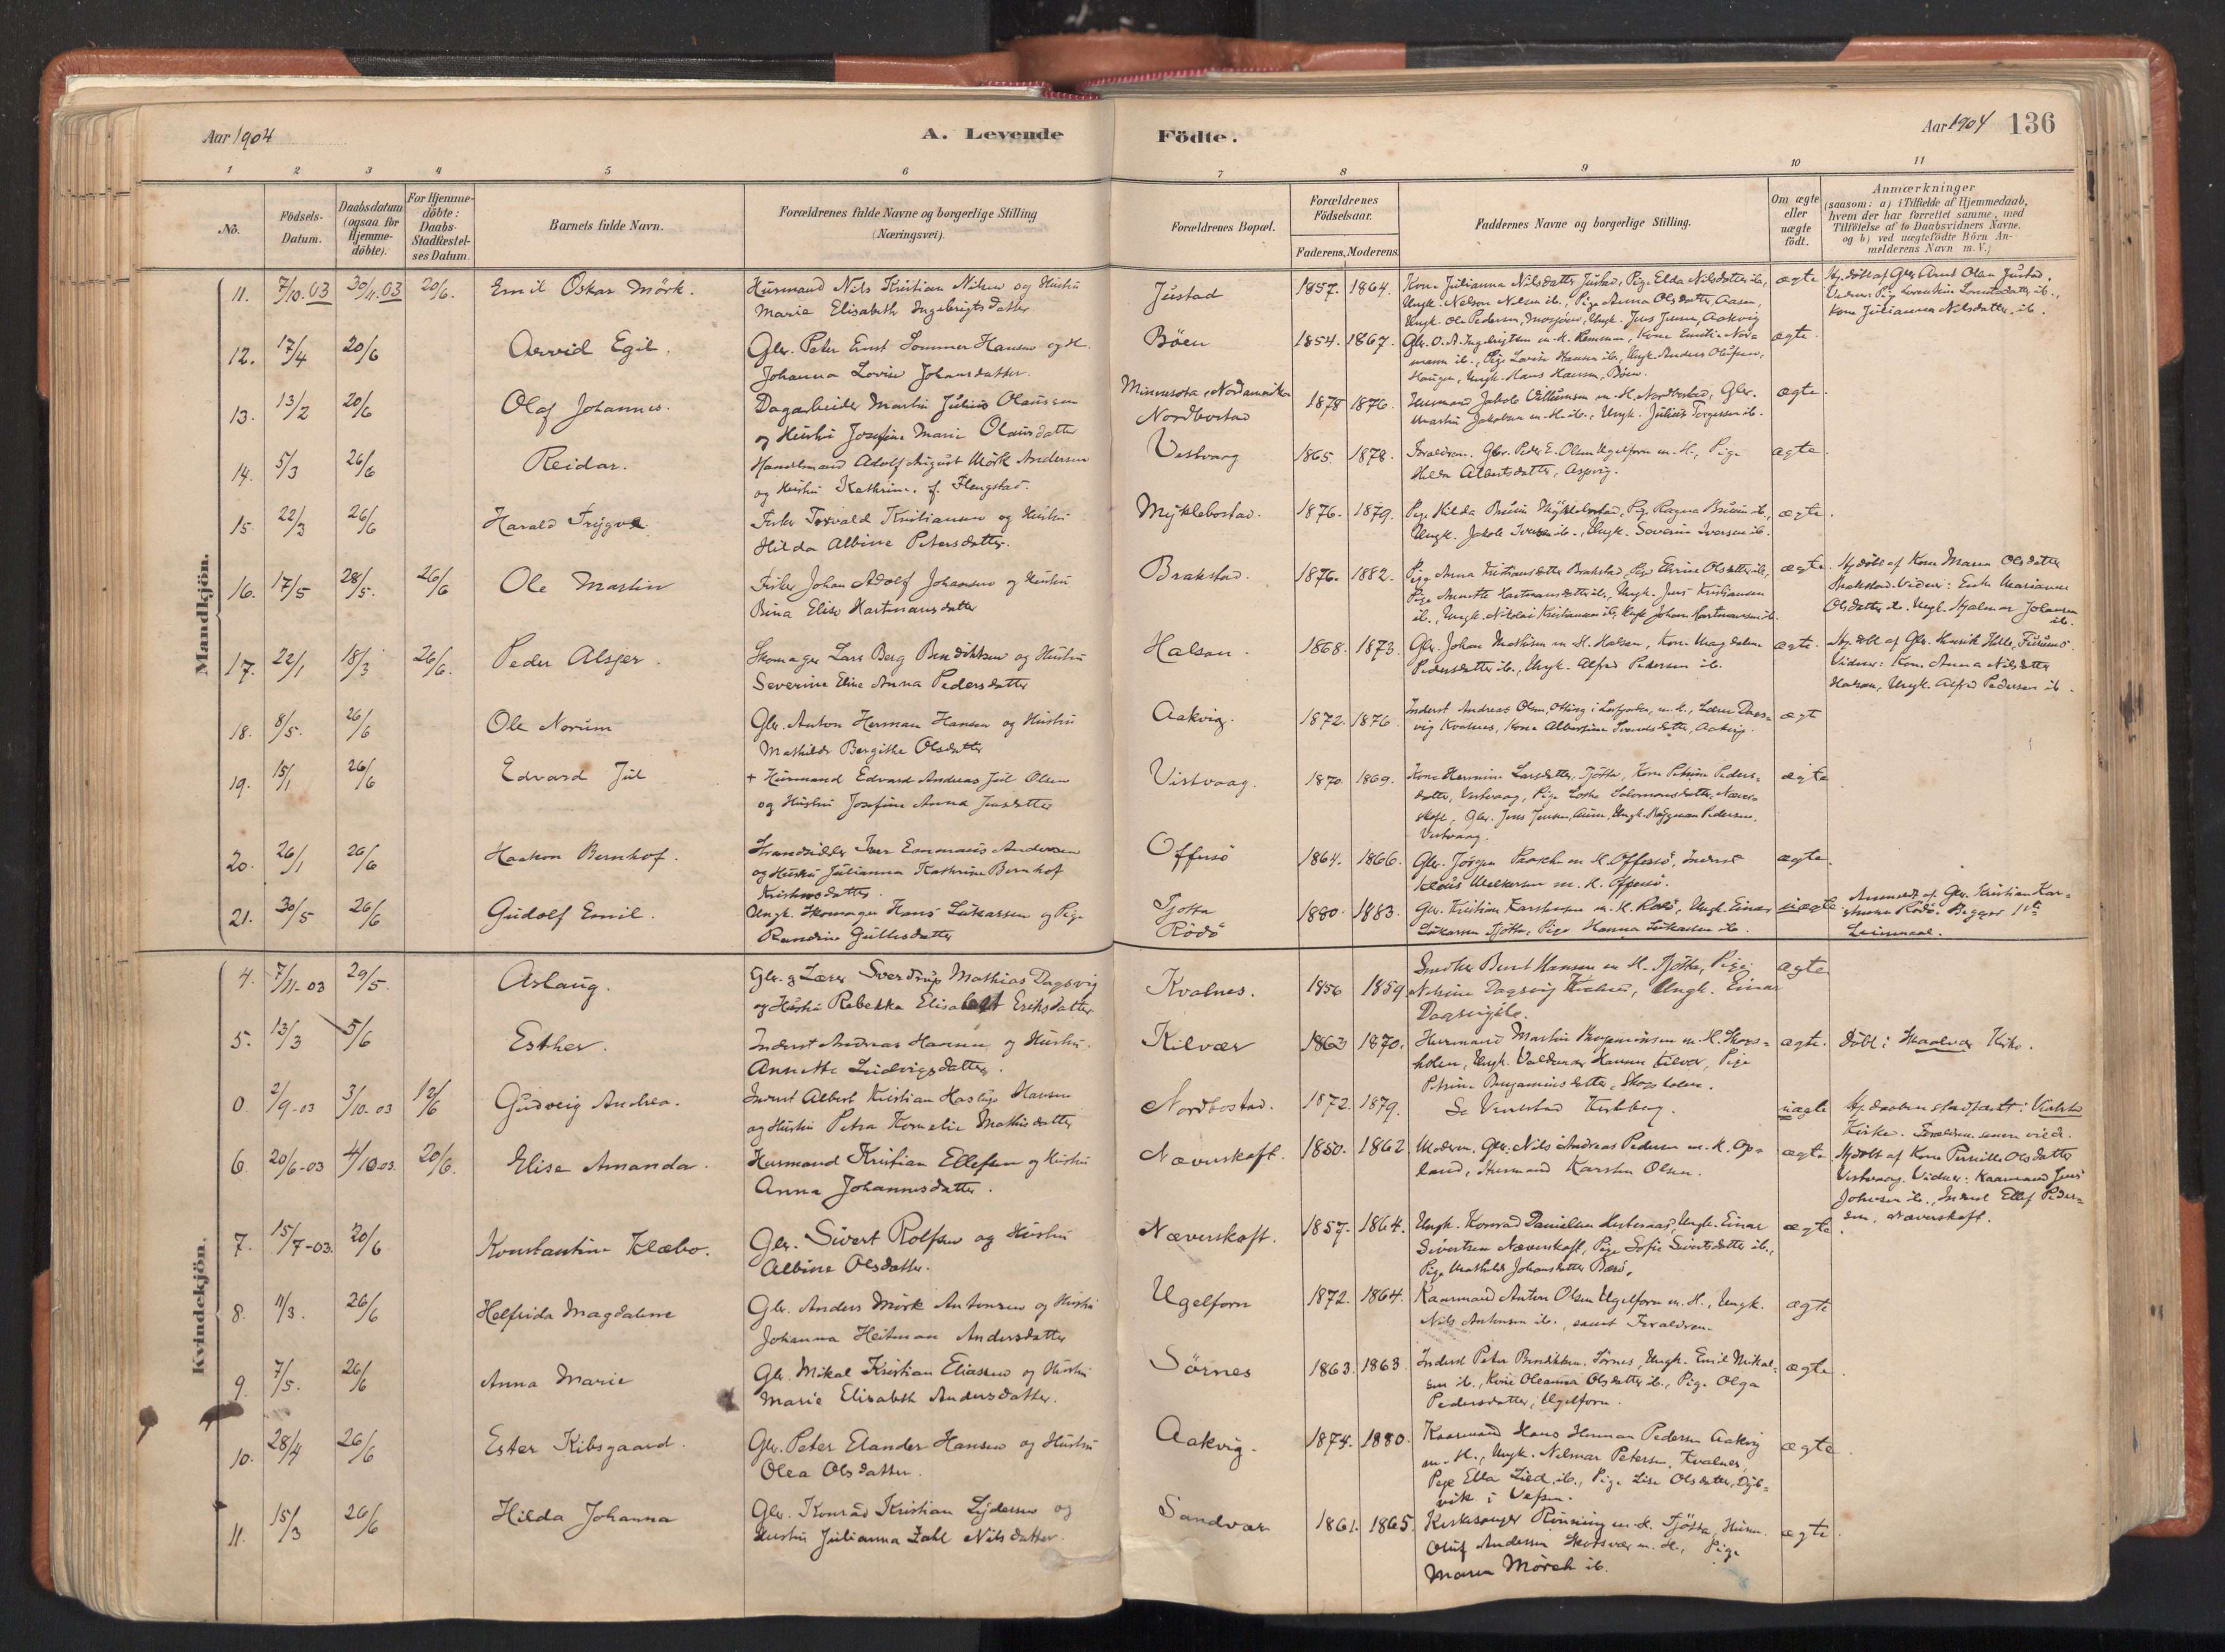 Aar 1904
A. Levende
Födte.
Aar 1904 136
1 2 3 4 5 6 7 8 9 10 11
No.
Födsels-Datum.
Daabsdatum (ogsaa för Hjemme-döbte).
For Hjemme-döbte: Daabs-Stadfæstel-ses Datum.
Barnets fulde Navn.
Forældrenes fulde Navne og borgerlige Stilling
(Næringsvei).
Forældrenes Bopæl.
Forældrenes Födselsaar.
Faderens. Moderens.
Faddernes Navne og borgerlige Stilling.
Om ægte eller uægte födt.
Anmærkninger
(saasom: a) i Tilfælde af Hjemmedaab,
hvem der har forrettet samme, med
Tilföielse af to Daabsvidners Navne.
og b) ved uægtefödte Börn An-
melderens Navn m. V.)
Mandkjön.
11. 7/10.03 30/11.03 20/6. Emil Oskar Mörk. Husmand Nils Kristian Nilsen og Hustru
Marie Elisabeth Ingebrigtsdatter
Justad 1857. 1864. Kone Julianna Nilsdatter Justad, Pige Elda Nilsdatter ib.,
Ungk. Nelson Nilsen ib., Pige Anna Olsdatter, Aasen,
Ungk. Ole Pedersen, Mosjöen, Ungk. Jens Jensen, Aakvig
ægte Hj. döbt af Gbr. Arnt Olsen Justad.
Kone Julianna Nilsdatter ib.
12. 17/4 20/6 Arvid Egil. Gbr. Peter Ernst Sommer Hansen og H.
Johanna Lovise Johansdatter.
Böen 1854. 1867. Gbr. O. A. Ingebrigtsen m. H., Kone Emilie Nor-
mann ib., Pige Lovise Hansen ib., Ungk. Anders Olufsen,
Haugen, Ungk. Hans Hansen, Böen.
ægte.
13. 13/2 20/6 Olaf Johannes. Dagarbeider Martin Julius Olaussen
og Hustru Josefine Marie Olausdatter
Minnesota, Nordamerika
Nordbostad
1878 1876. Husmand Jakob Villumsen m. H. Nordbostad, Gbr.
Martin Jakobsen m. H. ib., Ungk. Julius Torgersen ib.
ægte.
14. 5/3 26/6 Reidar. Handelsmand Adolf August Mörk Andersen
og Hustru Kathrine, f. Flengstad.
Vestvaag 1865. 1878. Forældrene. Gbr. Peder E. Olsen Ugelforn m. H., Pige
Hilda Albertsdatter, Aspvig.
ægte.
15. 22/3 26/6 Harald Trygve. Fisker Torvald Kristiansen og Hustru
Hilda Albine Petersdatter.
Myklebostad. 1876. 1879. Pige Hilda Bruun Myklebostad, Pig. Ragna Bruun ib.,
Ungk. Jakob Iversen ib., Ungk. Severin Iversen ib.
ægte.
16. 17/5 28/5. 26/6 Ole Martin Fisker Johan Adolf Johansen og Hustru
Bina Elise Hartmansdatter
Brakstad. 1876. 1882. Pige Anna Kristiansdatter Brakstad, Pige Elvine Olsdatter ib.,
Pige Annette Hartmansdatter ib., Ungk. Jens Kristiansen
ib., Ungk. Nikolai Kristiansen ib., Ungk. Johan Hartmansen ib.
ægte. Hj. döbt af Kone Maren Olsdatter
Brakstad. Vidner: Enke Marianne
Olsdatter ib. Ungk. Hjalmar Johansen
ib.
17. 22/1 18/3 26/6. Peder Alsger. Skomager Lars Berg Bendiktsen og Hustru
Severine Eline Anna Pedersdatter
Halsan. 1868. 1873. Gbr. Johan Mathisen m. H. Halsan, Kone Magdalena
Pedersdatter ib., Ungk. Alfred Pedersen ib.
ægte. Hj. döbt af Gbr. Henrik
Vidner: Kone Anna Nilsdatter
Halsan, Ungk. Alfred Pedersen ib.
18. 8/5. 26/6 Ole Norum Gbr. Anton Herman Hansen og Hustru
Mathilde Bergithe Olsdatter
Aakvig. 1872. 1876. Inderst Andreas Olsen, m. H., Lærer Dags-
vig Kvalnes, Kone Albertine Svendsdatter, Aakvig.
ægte
19. 15/1 26/6 Edvard Jul + Husmand Edvard Andreas Jul Olsen
og Hustru Josefine Anna Jensdatter
Vistvaag. 1870. 1869. Kone Hermine Larsdatter, Tjötta, Kone Petrine Peders-
datter, Vestvaag, Pige Lothe Salomonsdatter, Næver-
skoft, Gbr. Jens Jensen, Aunn, Ungk. Pedersen,
Vestvaag.
ægte
20. 26/1 26/6 Haakon Bernhof. Strandsidder Iver Emmaus Andersen
og Hustru Julianna Kathrine Bernhof
Kristensdatter.
Offersö 1864. 1866. Gbr. Jörgen Paasche m. H. Offersö, Inderst
Klaus Melkersen m. H. Offersö.
ægte.
21. 30/5 26/6 Gudolf Emil. Ungk. Skomager Hans Lukassen og Pige
Randine Gullesdatter
Tjötta
Rödö
1880. 1883. Gbr. Kristian Karstensen m. H. Rödö, Ungk. Einar
Lukassen Tjötta, Pige Hanna Lukassen ib.
uægte. Anmeldt af Gbr. Kristian Kar-
stensen Rödö. Begges 1ste
Leiermaal.
Kvindekjön.
4. 7/11-03 29/5. Aslaug. Gbr. og Lærer Sverdrup Mathias Dagsvig
og Hustru Rebekka Elisabet Eriksdatter
Kvalnes. 1856 1859 Snedker Bernt Hansen m. H. Tjötta, Pige
Nelsine Dagsvig Kvalnes, Ungk. Einar
Dagsvig ib.
ægte
5. 13/3 5/6 Esther. Inderst Andreas Hansen og Hustru
Annette Ludvigsdatter.
Kilvær 1863 1870. Husmand Martin Benjaminsen m. H. Skogs-
holen, Ungk. Valdemar Hansen Kilvær, Pige
Petrine Benjaminsdatter, Skogsholen.
ægte. Döbt i Skaalvær Kirke.
0. 2/9-03 3/10-03 12/6 Gudveig Andrea. Inderst Albert Kristian Haslige Hansen
og Hustru Petra Kornelie Mathisdatter
Nordbostad. 1872. 1879. Se Vevelstad Kirkebog.
uægte Hj. daaben stadfæst i Vevelstad
Kirke. Forældrene senere viede.
6. 20/6-03 4/10-03. 20/6. Elise Amanda. Husmand Kristian Ellefsen og Hustru
Anna Johannesdatter.
Næverskoft. 1850. 1862 Moderen, Gbr. Nils Andreas Pedersen m. H. Op-
land, Husmand Karsten Olsen.
ægte Hj. döbt af Kone Pernille Olsdatter
Vestvaag. Vidner: Kaarmand Jens
Johnsen ib., Inderst Ellef Peder-
sen, Næverskoft.
7. 15/7-03. 20/6 Konstantine Klæbo. Gbr. Sivert Rolfsen og Hustru
Albine Olsdatter.
Næverskoft. 1857. 1864. Ungk. Konrad Danielsen Husternæs, Ungk. Einar
Sivertsen Næverskoft, Pige Sofie Sivertsdatter ib.,
Pige Mathilde Johansdatter Bærö.
ægte
8. 11/3. 26/6 Helfrida Magdalene Gbr. Anders Mörk Antonsen og Hustru
Johanna Heitman Andersdatter
Ugelforn 1872. 1864. Kaarmand Anton Olsen Ugelforn m. H., Ungk.
Nils Antonsen ib., samt Forældrene.
ægte
9. 7/5. 26/6 Anna Marie Gbr. Mikal Kristian Eliassen og Hustru
Marie Elisabeth Andersdatter.
Sörnes 1863. 1863. Inderst Peter Bendiktsen, Sörnes, Ungk. Emil Mikal-
sen ib., Kone Oleanna Olsdatter ib., Pige Olga
Pedersdatter, Ugelforn.
ægte
10. 28/4 26/6 Ester Kibsgaard. Gbr. Peter Elander Hansen og Hustru
Olea Olsdatter.
Aakvig. 1874. 1880. Kaarmand Hans Herman Pedersen Aakvig
m. H., Ungk. Nilmar Petersen, Kvalnes,
Pige Ella Lied, ib., Pige Lise Olsdatter, Dyb-
vik i Vefsen.
ægte.
11. 15/3 26/6 Hilda Johanna Gbr. Konrad Kristian Lydersen og
Hustru Julianna Zahl Nilsdatter.
Sandvær 1861. 1865. Kirkesanger Rönning m. H. Tjötta, Husm.
Oluf Andersen Skotsvær m. H., Pige
Maren Mörch ib.
ægte